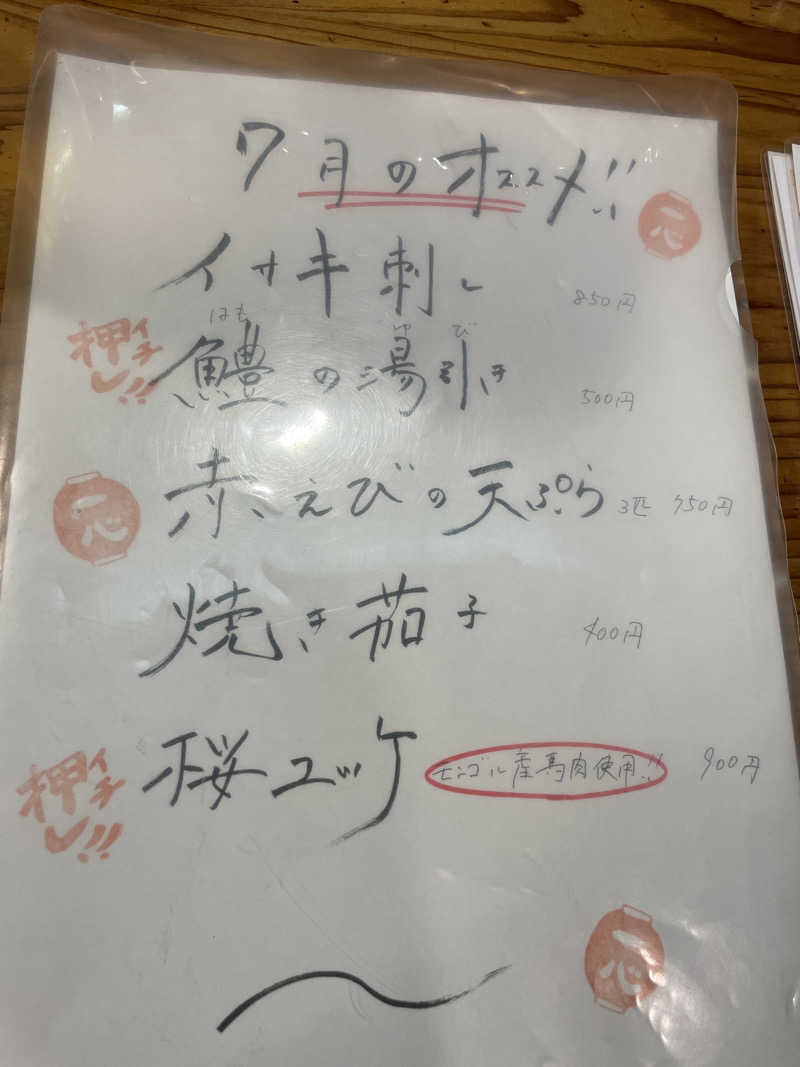 7月のオススメ!!
一心
イサキ刺し 850円
イチ押し!!
はも ゆ び
鱧の湯引き 500円
一心
赤えびの天ぷら 3匹 750円
焼き茄子 400円
イチ押し!!
桜ユッケ モンゴル産馬肉使用!! 900円
一心